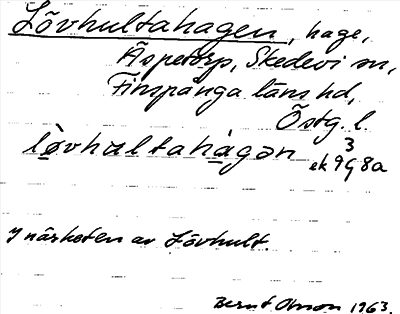 Lövhultahagen, hage,
Äspetorp, Skedevi sn,
Finspånga läns hd,
Östg. l.
lø̀vhʉltahàgən ek 9G 8a
3
I närheten av Lövhult.
Bernt Olsson 1963.